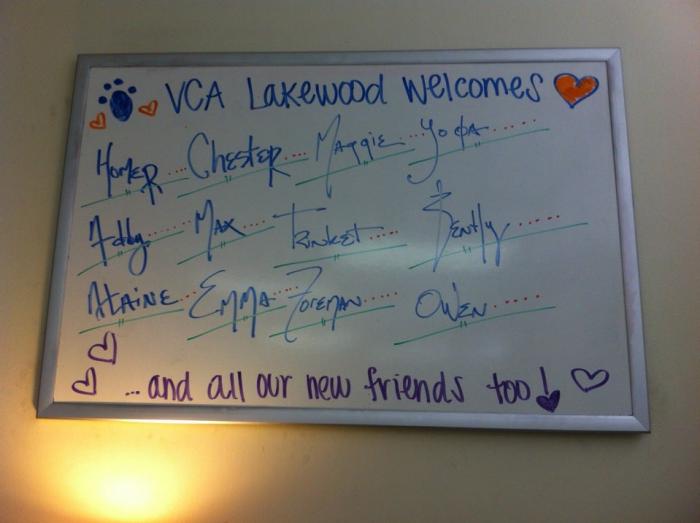 VCA Lakewood Welcomes
Homer.... Chester.... Maggie.... Yoda.....
Addy..... Max.... Trinket.... Bently.....
Alaine... Emma.... Foreman..... Owen.....
...and all our new friends too!